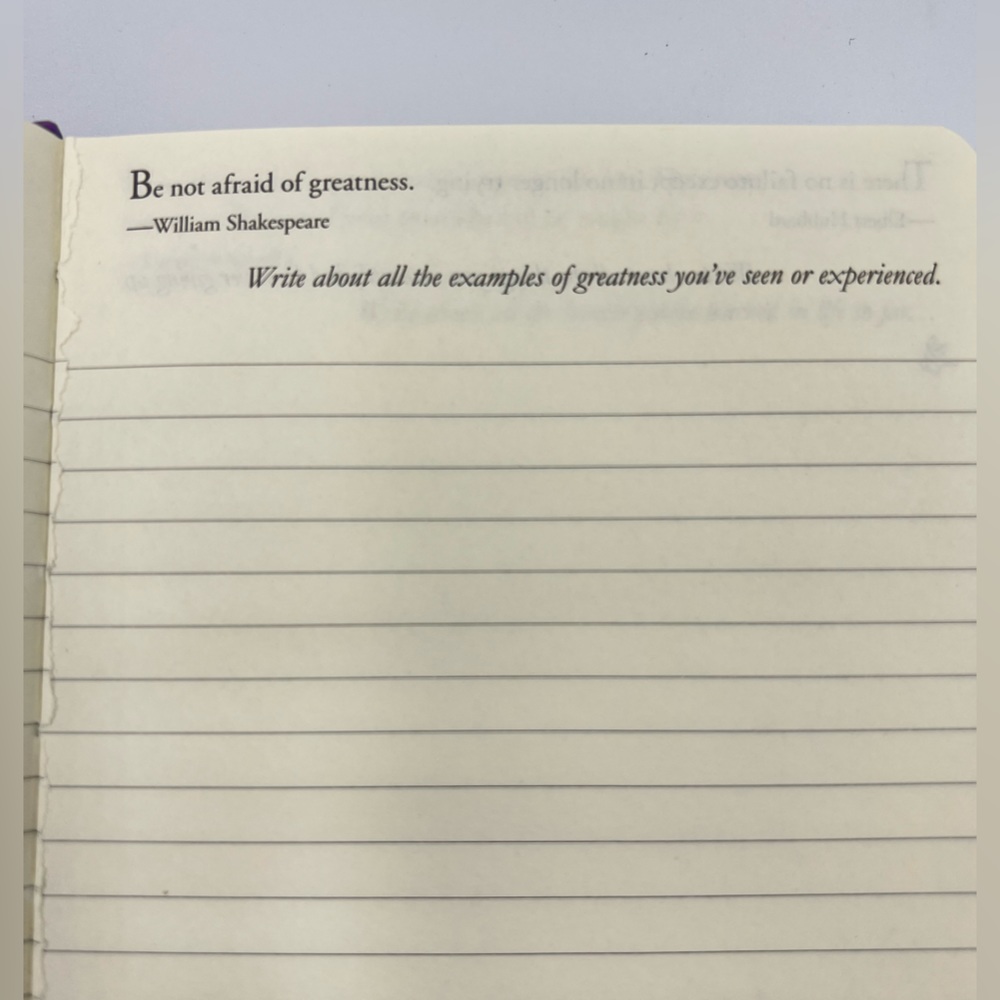 Be not afraid of greatness.
—William Shakespeare
Write about all the examples of greatness you've seen or experienced.